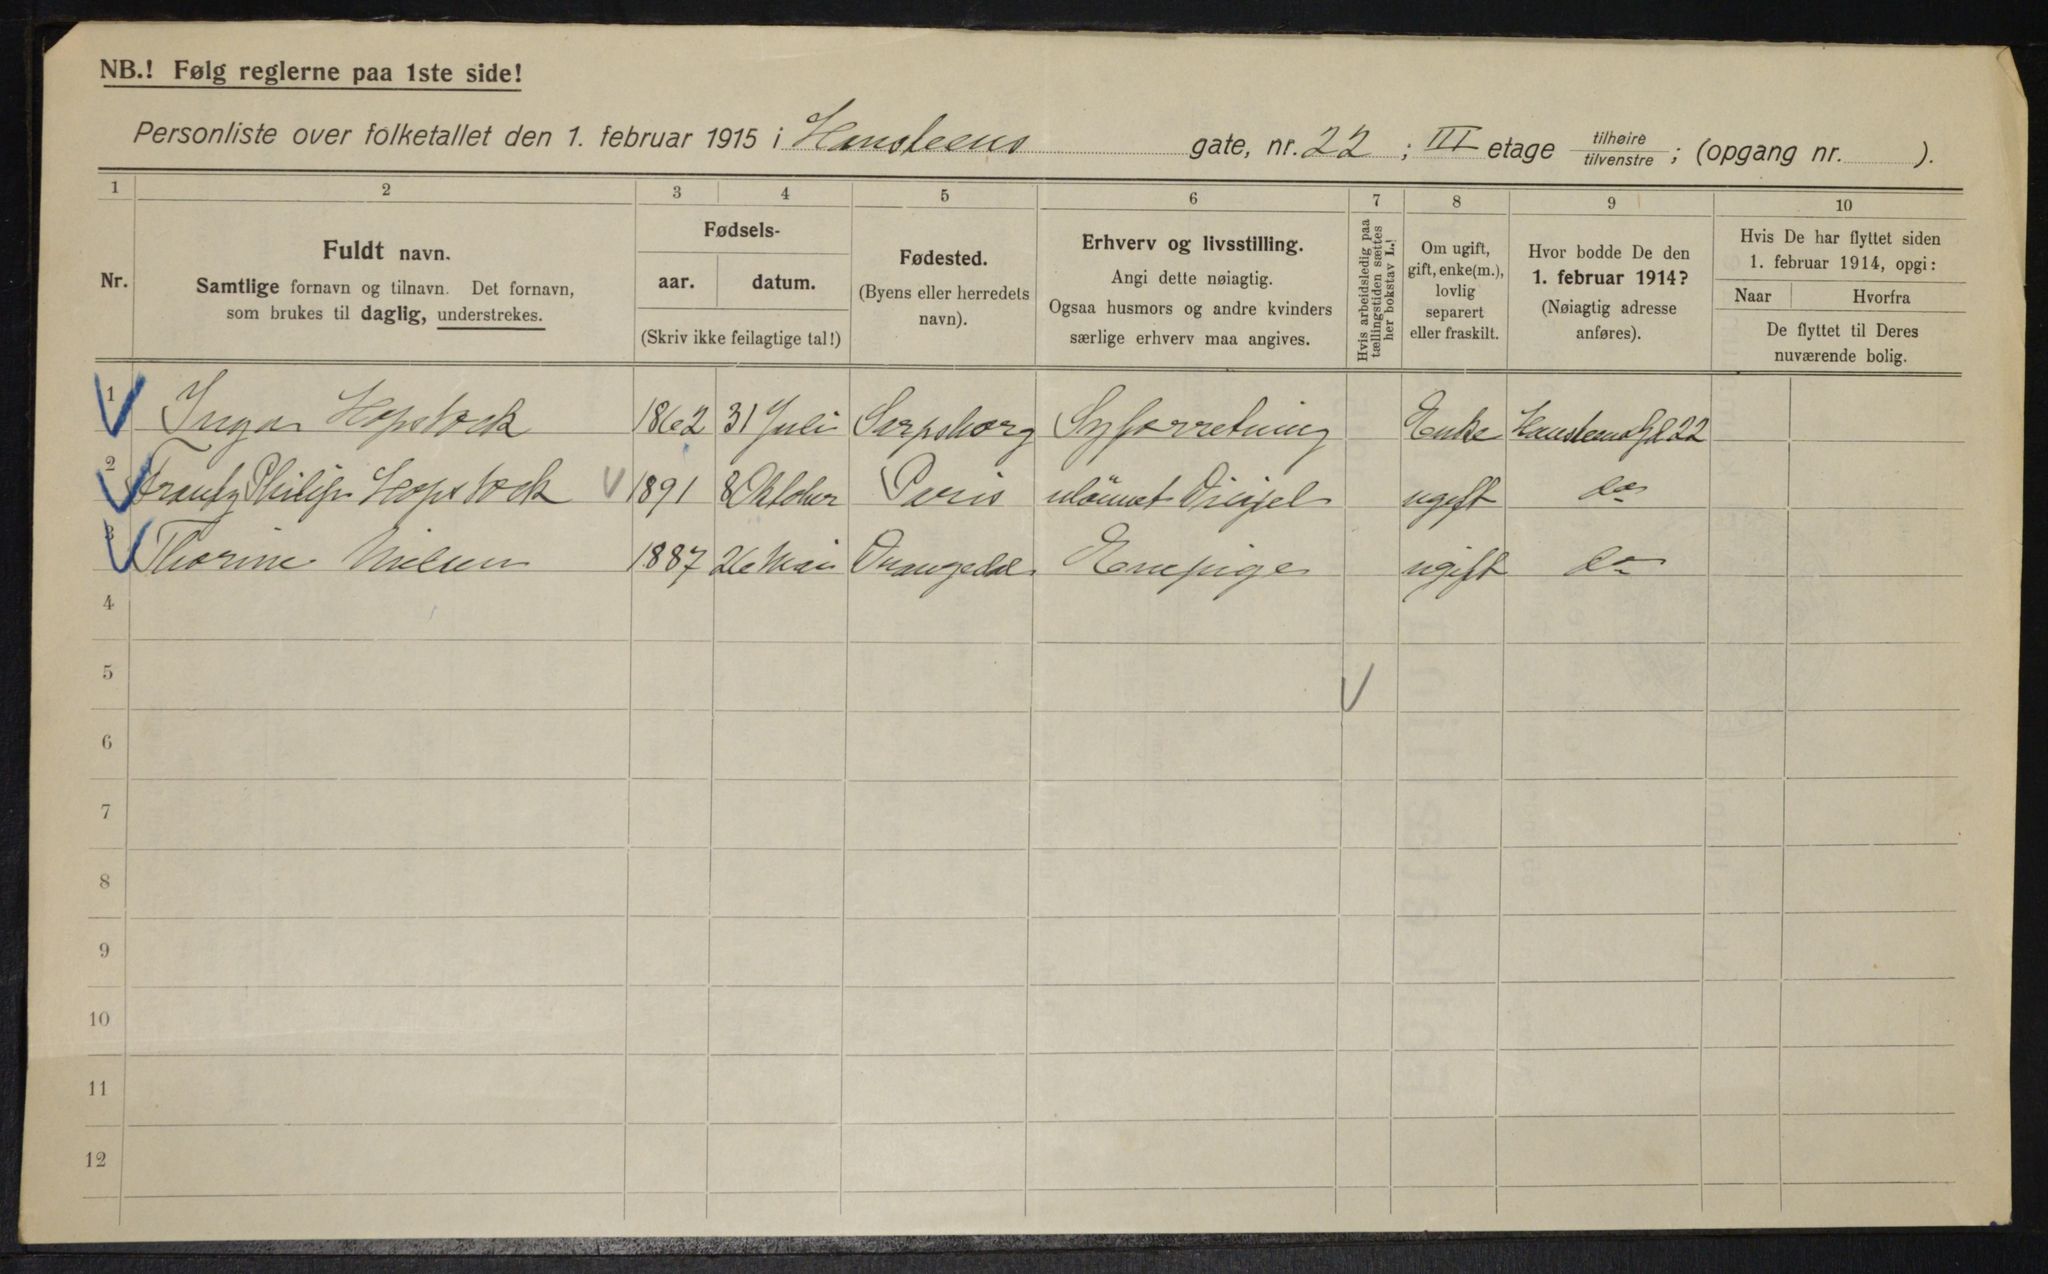 NB.! Følg reglerne paa 1ste side!
Personliste over folketallet den 1. februar 1915 i Hansteens gate, nr. 22 ; III etage tilhøire tilvenstre ; (opgang nr. ).
1 2 3 4 5 6 7 8 9 10
Nr.
Fuldt navn.
Samtlige fornavn og tilnavn. Det fornavn,
som brukes til daglig, understrekes.
Fødsels-
aar. datum.
(Skriv ikke feilagtige tal!)
Fødested.
(Byens eller herredets
navn).
Erhverv og livsstilling.
Angi dette nøiagtig.
Ogsaa husmors og andre kvinders
særlige erhverv maa angives.
Hvis arbeidsledig paa
tællingstiden sættes
her bokstav L.!
Om ugift,
gift, enke(m.),
lovlig
separert
eller fraskilt.
Hvor bodde De den
1. februar 1914?
(Nøiagtig adresse
anføres).
Hvis De har flyttet siden
1. februar 1914, opgi:
Naar Hvorfra
De flyttet til Deres
nuværende bolig.
1 Inga Hopstock 1862 31 Juli Sarpsborg Syforretning Enke Hansteensgt 22
2 Frantz Philip Hopstock 1891 8 Oktober Paris ugift do
3 Thorine Nielsen 1887 26 Mai Drangedal Enepige ugift do
4
5
6
7
8
9
10
11
12